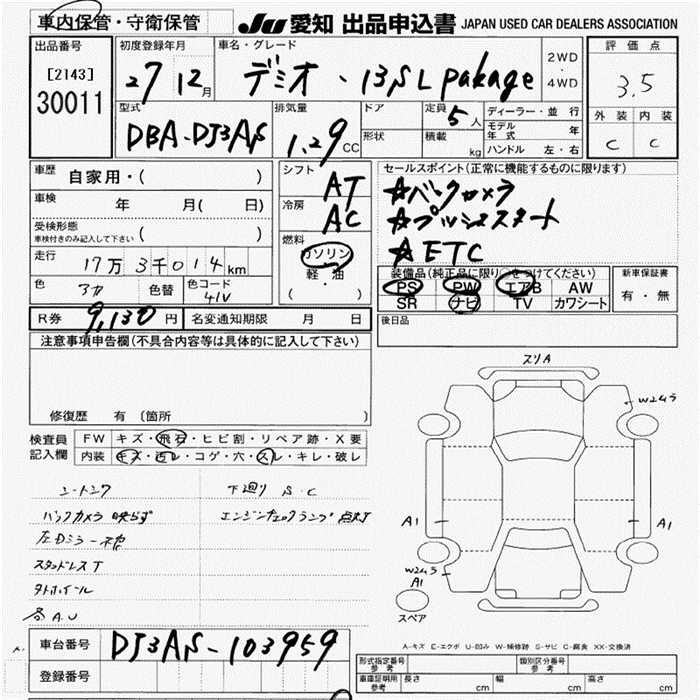 車内保管・守衛保管
JU 愛知 出品申込書 JAPAN USED CAR DEALERS ASSOCIATION
出品番号
[2143]
30011
初度登録年月
27 12月
車名・グレード
デミオ・13S L pakage
2WD
4WD
評価点
3.5
外装 内装
C C
型式
DBA-DJ3AS
排気量
1.29 CC
ドア
形状
定員 5人
積載 kg
ディーラー・並行
モデル年式 年
ハンドル 左・右
車歴 自家用・( )
車検 年 月( 日)
受検形態
車検付きのみ記入して下さい ( )
走行 17万3千014km
色 アカ 色替 色コード 41V
シフト AT
冷房 AC
燃料
ガソリン
軽・油
( ・ )
セールスポイント(正常に機能するものに限ります)
☆バックカメラ
☆プッシュスタート
☆ETC
装備品(純正品に限り○をつけてください)
PS PW エアB AW
SR ナビ TV カワシート
新車保証書
有・無
R券 9,130円 名変通知期限 月 日
後日品
注意事項申告欄(不具合内容等は具体的に記入して下さい)
修復歴 有 (箇所 )
検査員記入欄
FW キズ・飛石・ヒビ割・リペア跡・X要
内装 キズ・汚レ・コゲ・穴・スレ・キレ・破レ
下廻り S・C
バックカメラ 映らず
エンジンチェックランプ 点灯
スタッドレスT
各A.U
スリA
W2ヰ5
A1
A1
W2ヰ5
A1
スペア
A-キズ E-エクボ U-凹み W-補修跡 S-サビ C-腐食 XX-交換済
車台番号 DJ3AS-103959
登録番号
形式指定番号 参考
類別区分番号 参考
車庫証明用 参考 長さ cm 幅 cm 高さ cm